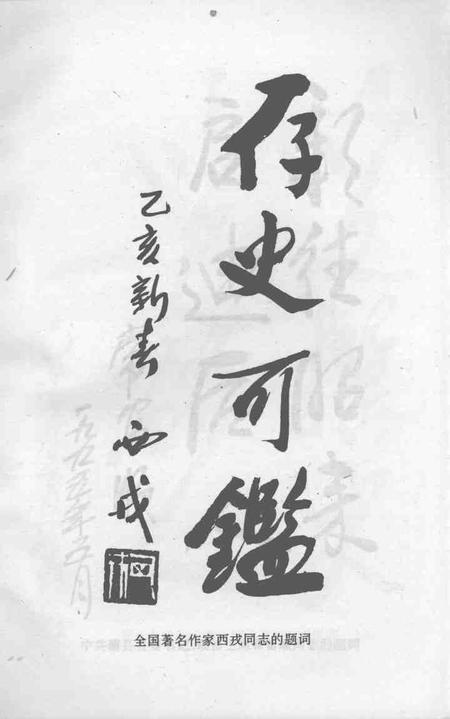 存史可鑑
乙亥新春 西戎
全国著名作家西戎同志的题词